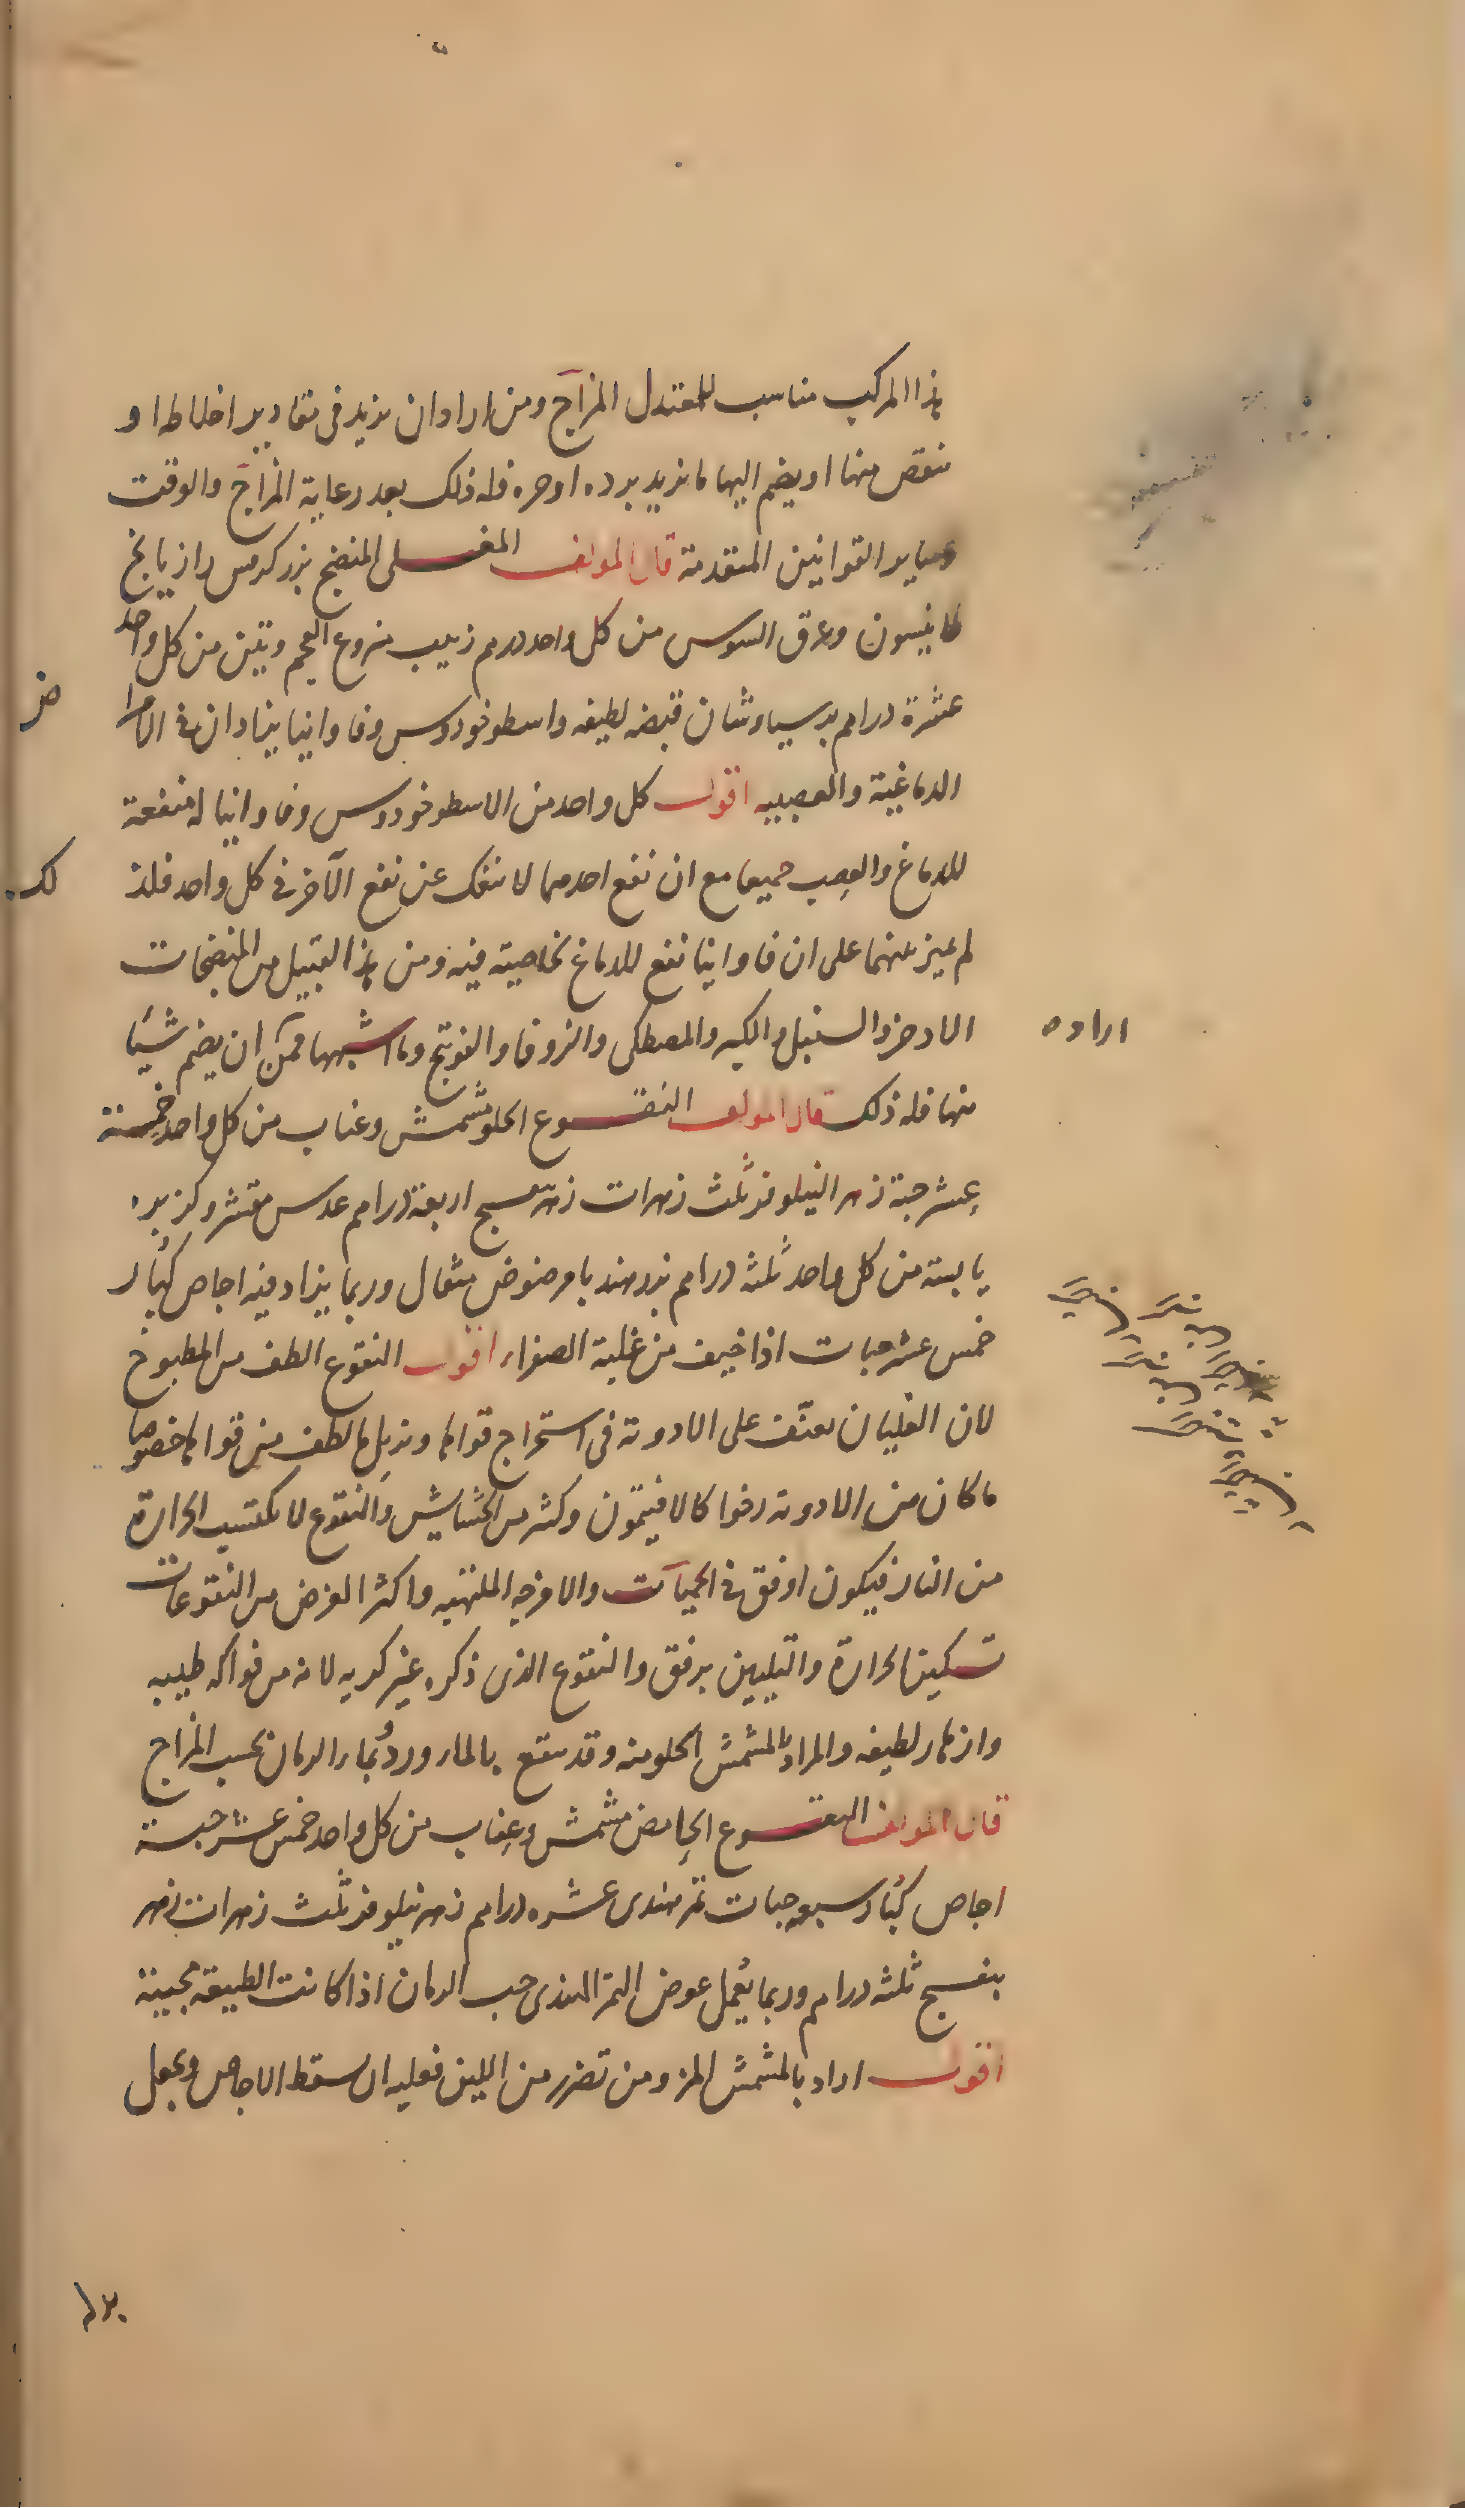 هذا المركب مناسب للمعتدل المزاج ومن اراد ان يزيد فى مقادير اخلاطه او
ينقص منها او يضم اليها ما يزيد برده او حره فله ذلك بعد رعاية المزاج والوقت
وساير القوانين المتقدمة قال المولف المغلى المنضج بزر كرفس رازيانج
انيسون وعرق السوس من كل واحد درهم زبيب منزوع العجم وتين من كل واحد
عشرة دراهم برسياوشان قبضه لطيفه واسطوخودوس وفاوانيا يزادان فى الامرا
ض
الدماغية والعصبيه اقول كل واحد من الاسطوخودوس وفاوانيا له منفعة
للدماغ والعصب جميعا مع ان نفع احدهما لا ينفك عن نفع الآخر فى كل واحد فلذ
لك
لم يميز بينهما على ان فاوانيا نفع للدماغ بخاصية فيه ومن هذا القبيل من المنضجات
الاذخر والسنبل والكبر والمصطكى والزوفا والفوتنج وما اشبهها فمن ان يضم شيئا
اراده
منها فله ذلك قال المولف النقوع الحلو مشمش وعناب من كل واحد خمسة
عشر حبة زهر النيلوفر ثلث زهرات زهر بنفسج اربعة دراهم عدس مقشر وكزبره
يابسة من كل واحد ثلثه دراهم بزر هندبا مرضوض مثقال وربما يزاد فيه اجاص كبار
خمس عشر حبات اذا خيف من غلبة الصفراء اقول النقوع الطف من المطبوخ
لان الغليان يعنف على الادوية فى استخراج قواها ويزيل مالطف من قواها خصوصا
ما كان من الادوية رخوا كالافيتمون وكثر من الحشايش والنقوع لا يكتسب الحرارة
من النار فيكون اوفق فى الحميات والامزجه الملتهبه واكثر الغرض من النقوعات
تسكين الحرارة والتليين برفق والنقوع الذى ذكره غير كريه لانه من فواكه طيبه
وازهار لطيفه والمراد بالمشمش الحلو منه وقد ينقع بالماء ورد وبماء الرمان بحسب المزاج
قال المولف النقوع الحامض مشمش وعناب من كل واحد خمس عشر حبة
اجاص كبار سبع حبات تمر هندى عشره دراهم زهر نيلوفر ثلث زهرات زهر
بنفسج ثلثه دراهم وربما يعمل عوض التمر الهندى حب الرمان اذا كانت الطبيعة مجيبة
اقول اراد بالمشمش المز ومن تضرر من اللين فعليه ان يسقط الاجاص ويجعل